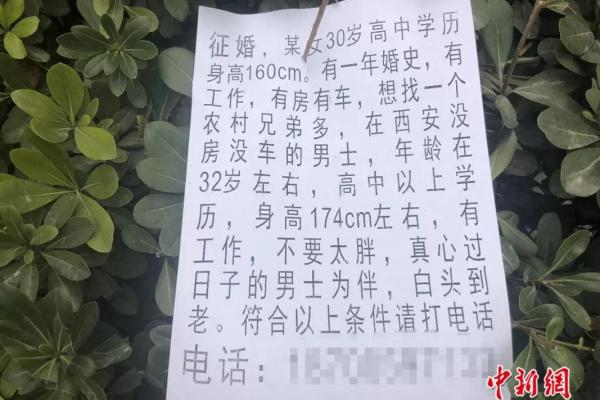 征婚，某女30岁高中学历
身高160cm。有一年婚史，有
工作，有房有车，想找一个
农村兄弟多，在西安没
房没车的男士，年龄在
32岁左右，高中以上学
历，身高174cm左右，有
工作，不要太胖，真心过
日子的男士为伴，白头到
老。符合以上条件请打电话
电话：
中新網